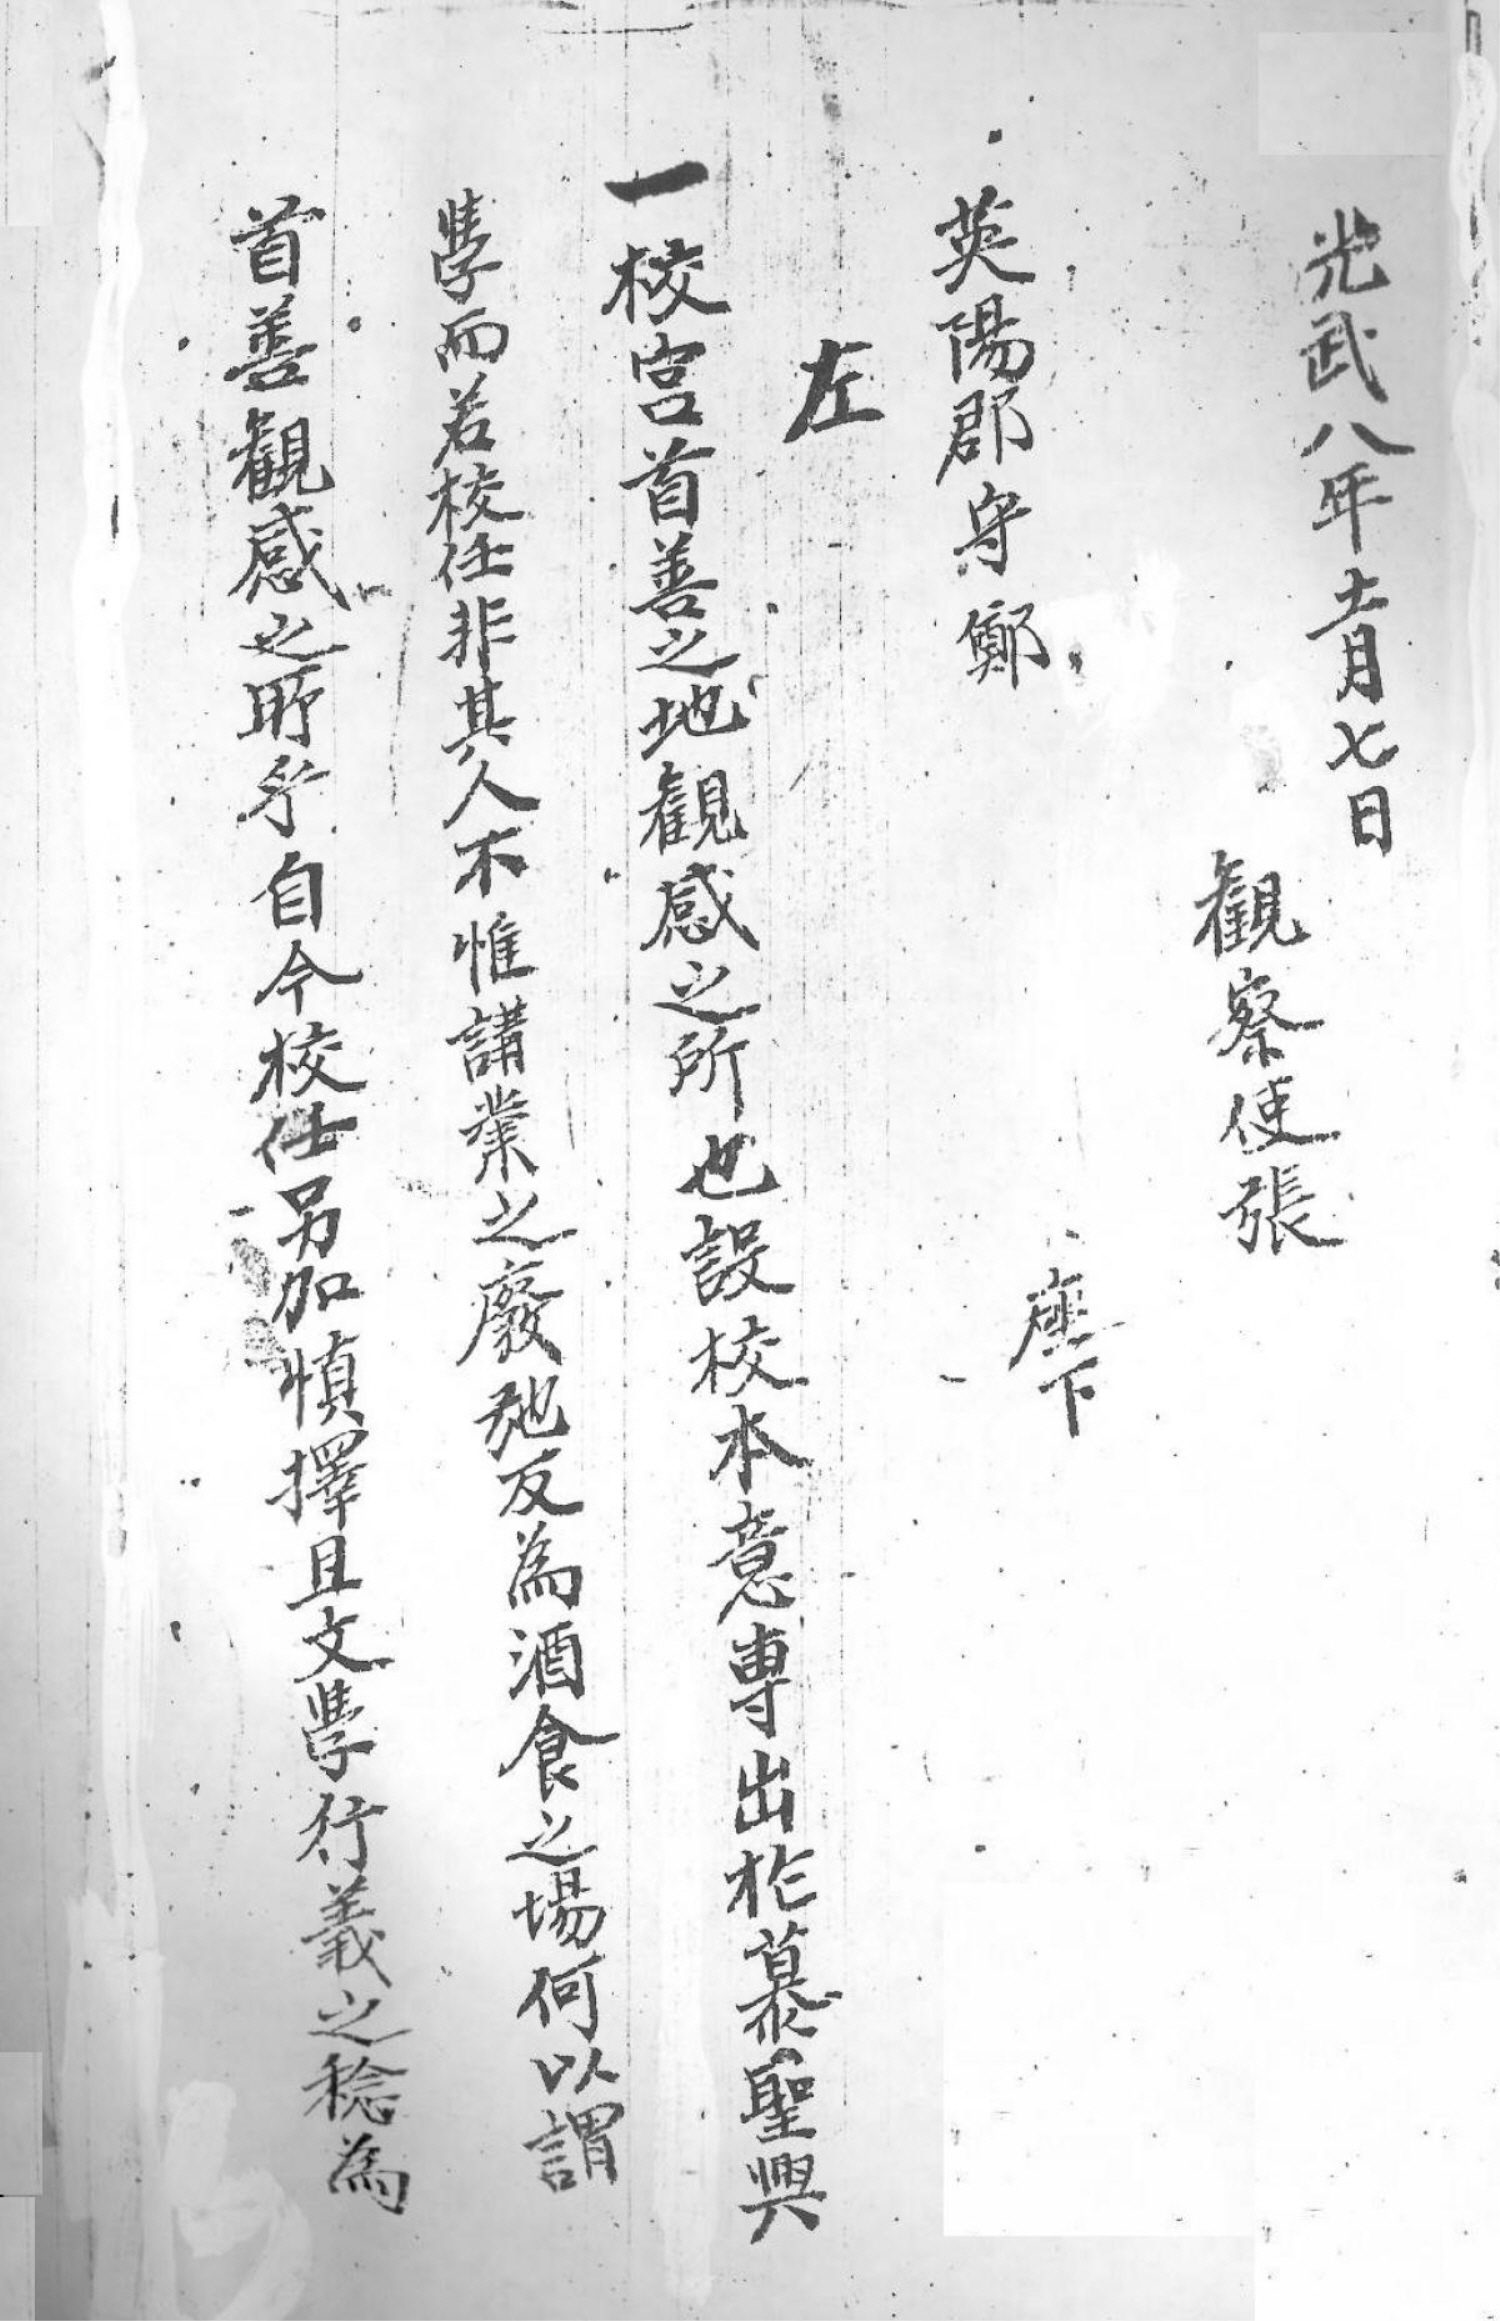 光武八年十一月七日
觀察使張
座下
英陽郡守鄭
左
一校宮首善之地觀感之所也設校本意專出於慕聖興
學而若校任非其人不惟講業之廢弛反為酒食之場何以謂
首善觀感之所乎自今校任另加愼擇且文學行義之稔為